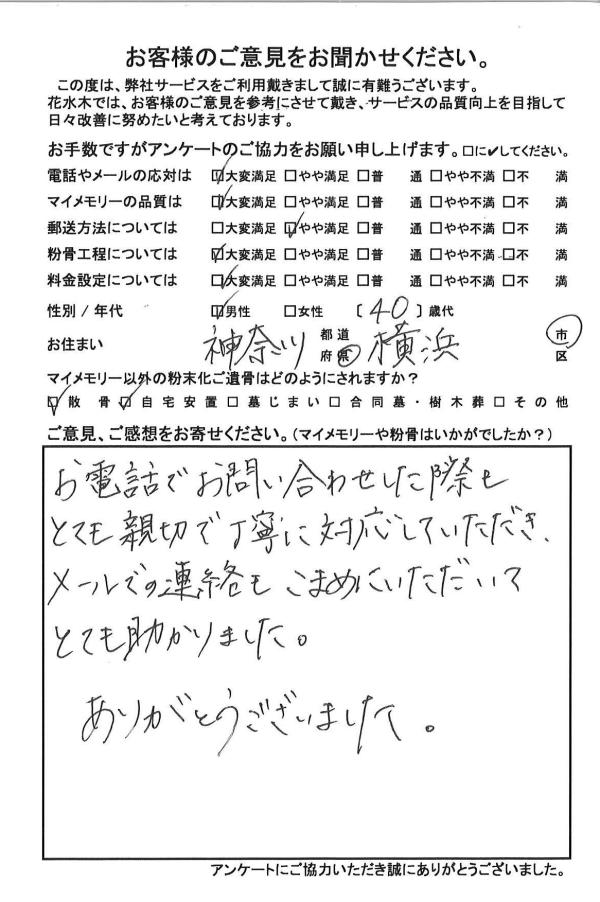 お客様のご意見をお聞かせください。
この度は、弊社サービスをご利用戴きまして誠に有難うございます。
花水木では、お客様のご意見を参考にさせて戴き、サービスの品質向上を目指して
日々改善に努めたいと考えております。
お手数ですがアンケートのご協力をお願い申し上げます。□に✔してください。
電話やメールの応対は ☑大変満足 □やや満足 □普 通 □やや不満 □不 満
マイメモリーの品質は ☑大変満足 □やや満足 □普 通 □やや不満 □不 満
郵送方法については □大変満足 ☑やや満足 □普 通 □やや不満 □不 満
粉骨工程については ☑大変満足 □やや満足 □普 通 □やや不満 □不 満
料金設定については ☑大変満足 □やや満足 □普 通 □やや不満 □不 満
性別 / 年代 ☑男性 □女性 〔 40 〕歳代
お住まい 神奈川 都道府県 横浜 市区
マイメモリー以外の粉末化ご遺骨はどのようにされますか？
☑散骨 ☑自宅安置 □墓じまい □合同墓・樹木葬 □その他
ご意見、ご感想をお寄せください。（マイメモリーや粉骨はいかがでしたか？）
お電話でお問い合わせした際も
とても親切で丁寧に対応していただき、
メールでの連絡もこまめにいただいて
とても助かりました。
ありがとうございました。
アンケートにご協力いただき誠にありがとうございました。